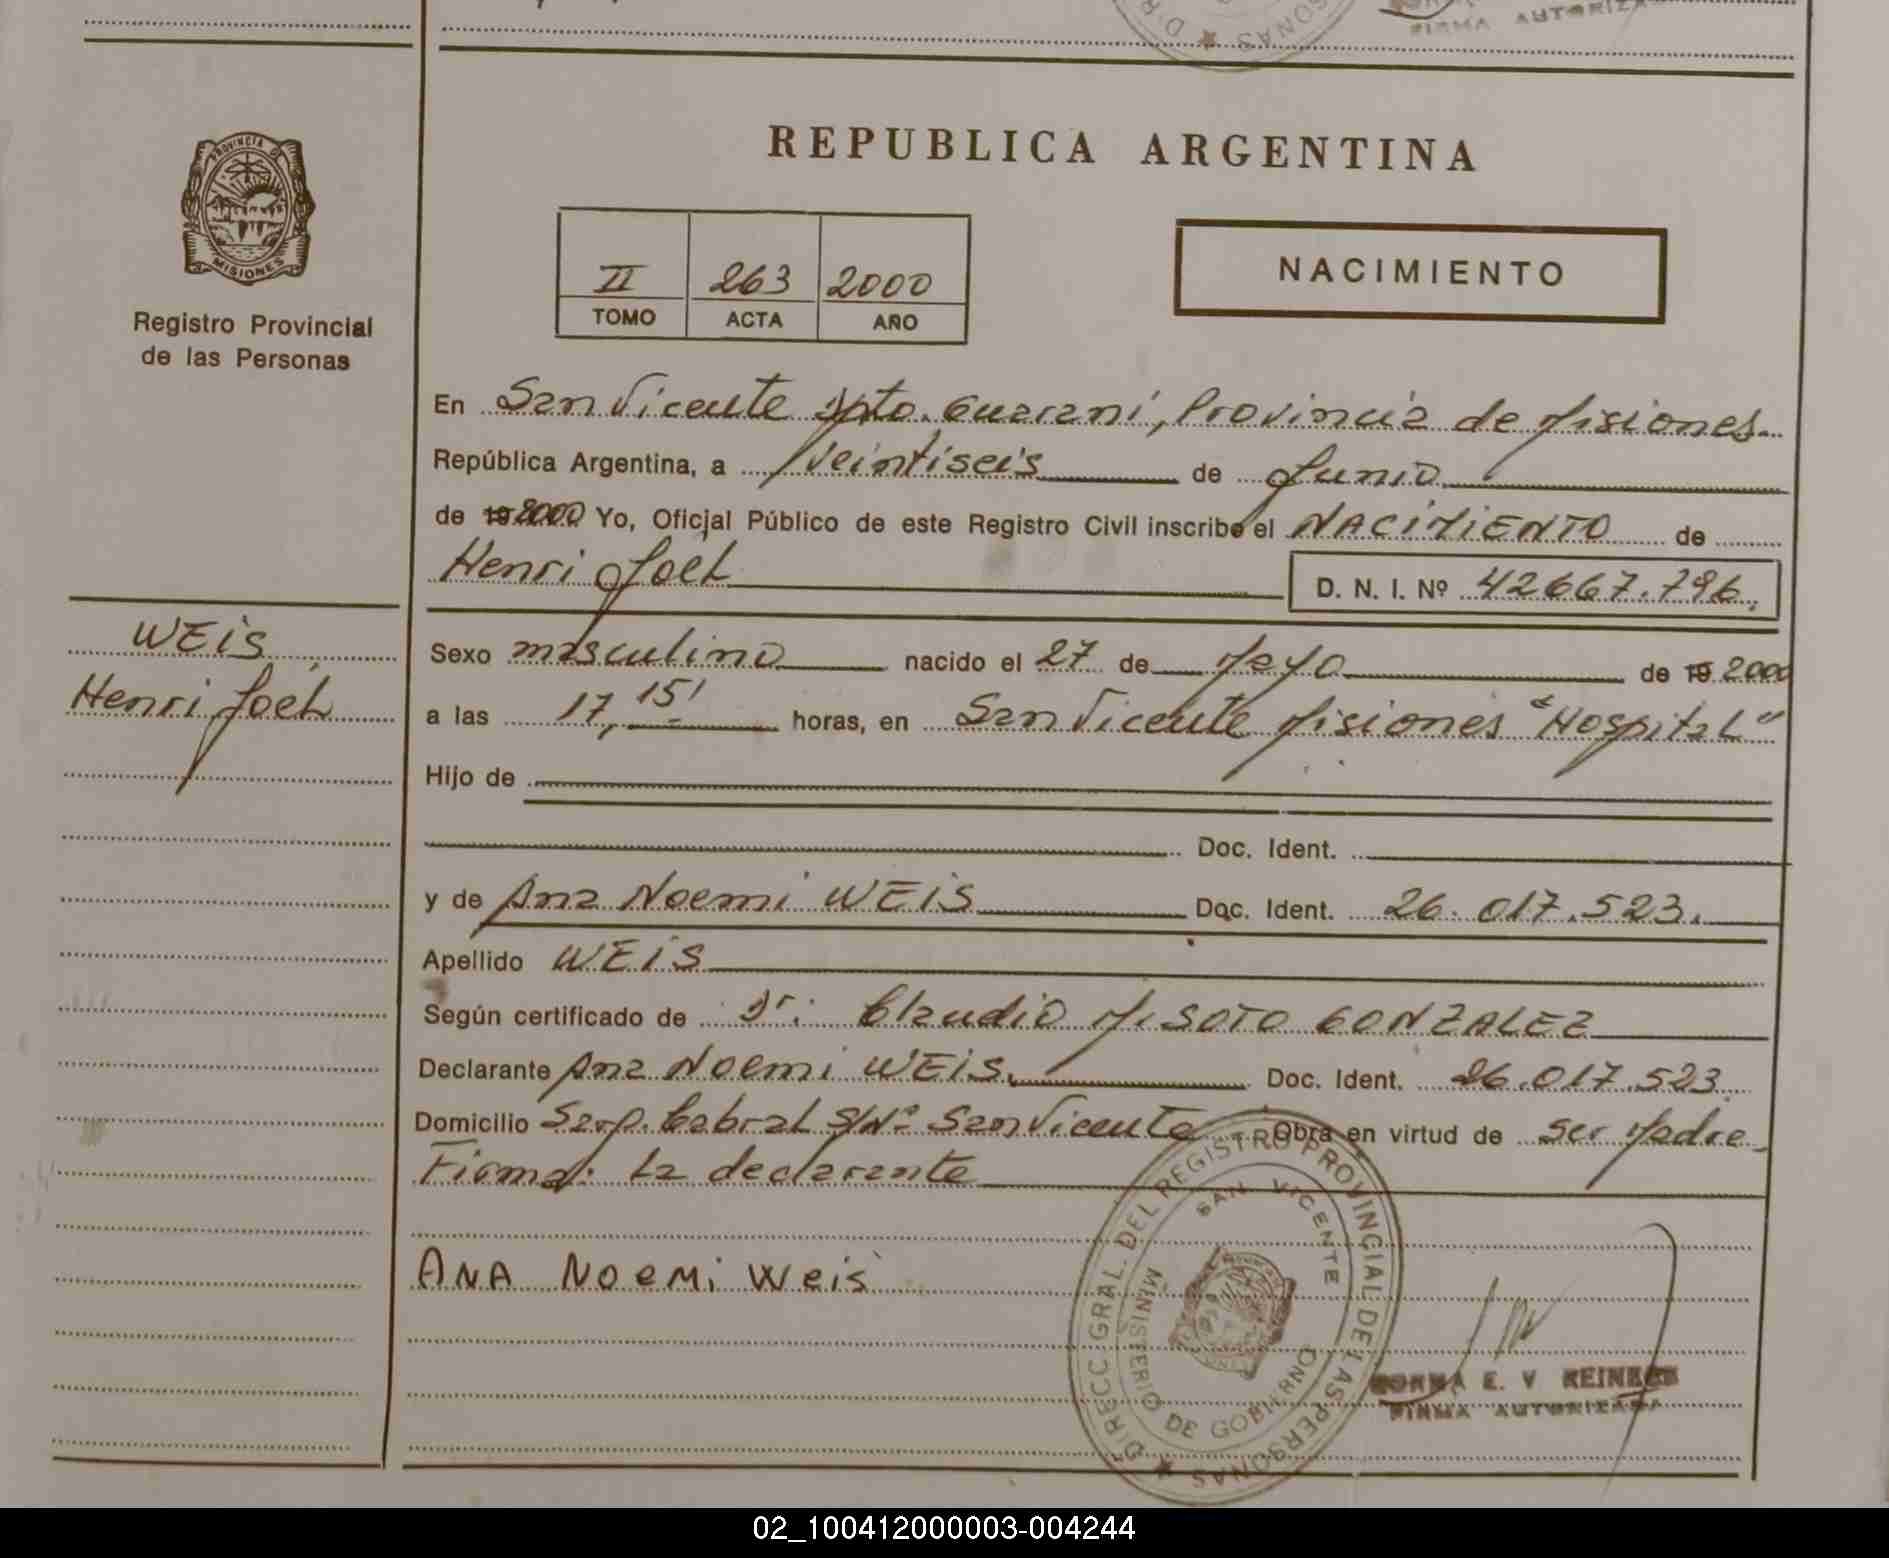 FIRMA AUTORIZA
REPUBLICA ARGENTINA
PROVINCIA DE
MISIONES
Registro Provincial
de las Personas
II 263 2000
TOMO ACTA AÑO
NACIMIENTO
En San Vicente Dpto. Guaraní, Provincia de Misiones.
República Argentina, a Veintiseis de Junio
de 19 2000 Yo, Oficial Público de este Registro Civil inscribo el NACIMIENTO de
Henri Joel D. N. I. Nº 42667.796.
WEIS
Henri Joel
Sexo masculino nacido el 27 de Mayo de 19 2000
a las 17,15' horas, en San Vicente Misiones "Hospital"
Hijo de
Doc. Ident.
y de Ana Noemi WEIS Doc. Ident. 26.017.523.
Apellido WEIS
Según certificado de Dr: Claudio M. SOTO GONZALEZ
Declarante Ana Noemi WEIS. Doc. Ident. 26.017.523
Domicilio Sarg. Cabral S/Nº San Vicente Obra en virtud de ser Madre.
Firma: La declarante
ANA NOEMI WEIS
DIRECC. GRAL. DEL REGISTRO PROVINCIAL DE LAS PERSONAS
SAN VICENTE
MINISTERIO DE GOBIERNO
NORMA E. V REINECK
FIRMA AUTORIZADA
02_100412000003-004244